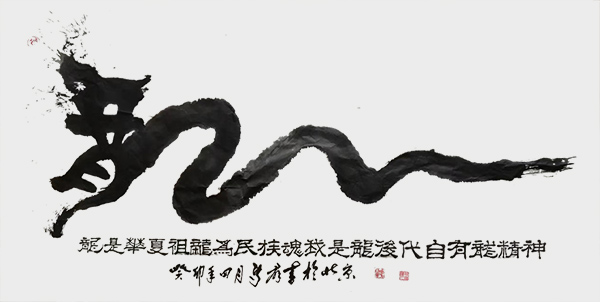 龍
龍是華夏祖龍為民族魂我是龍後代自有龍精神
癸卯年四月書於北京